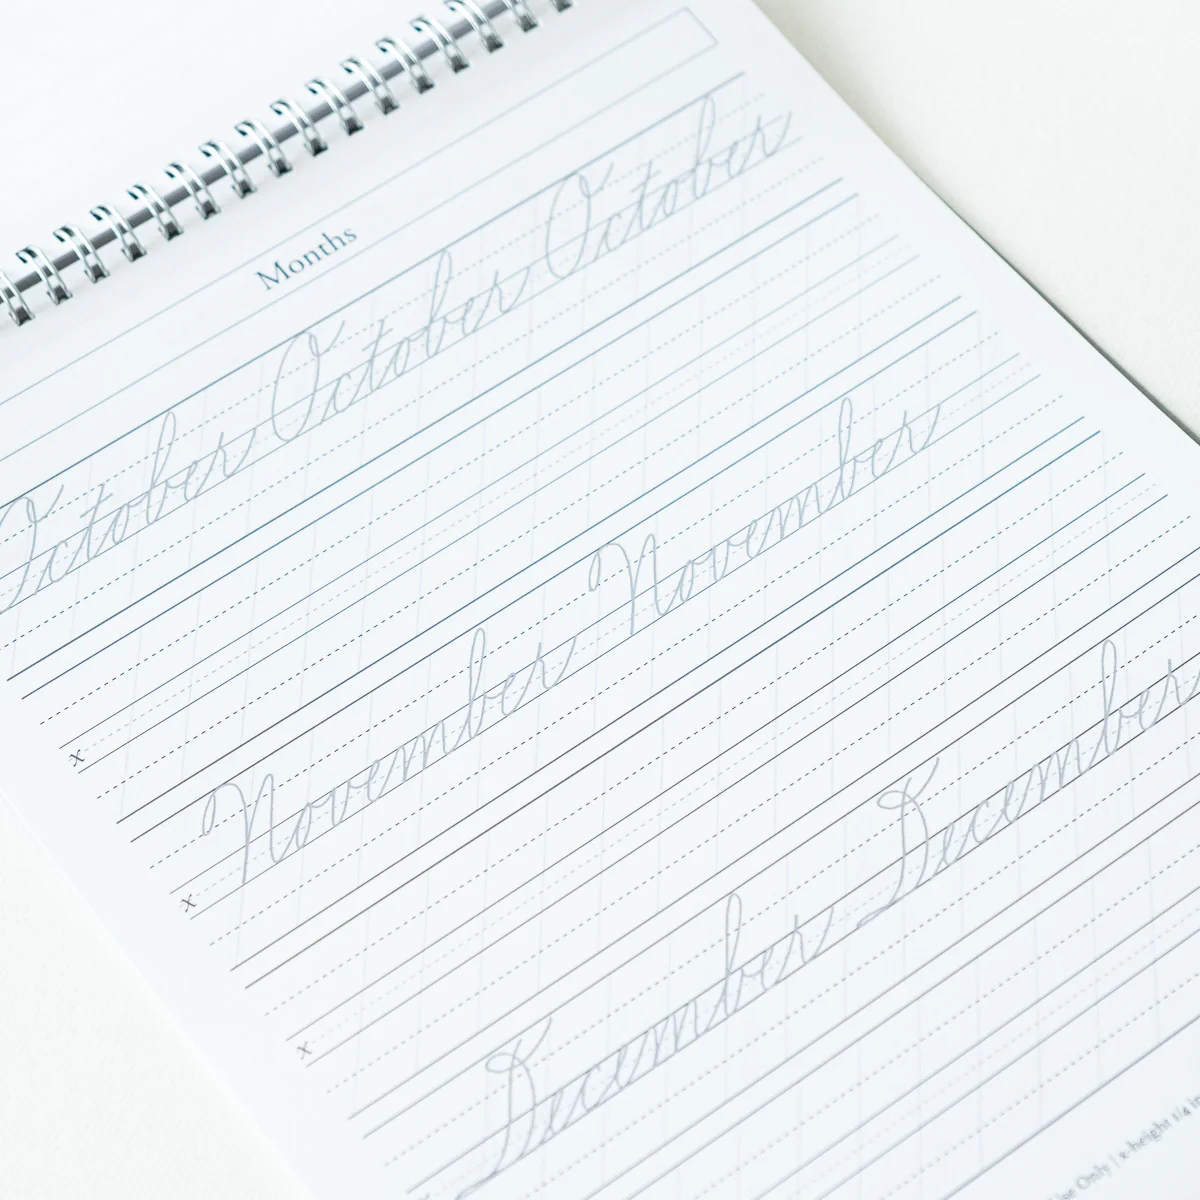 Months
October October October
x
November November
x
December December
x
Only | x-height 1/4 in